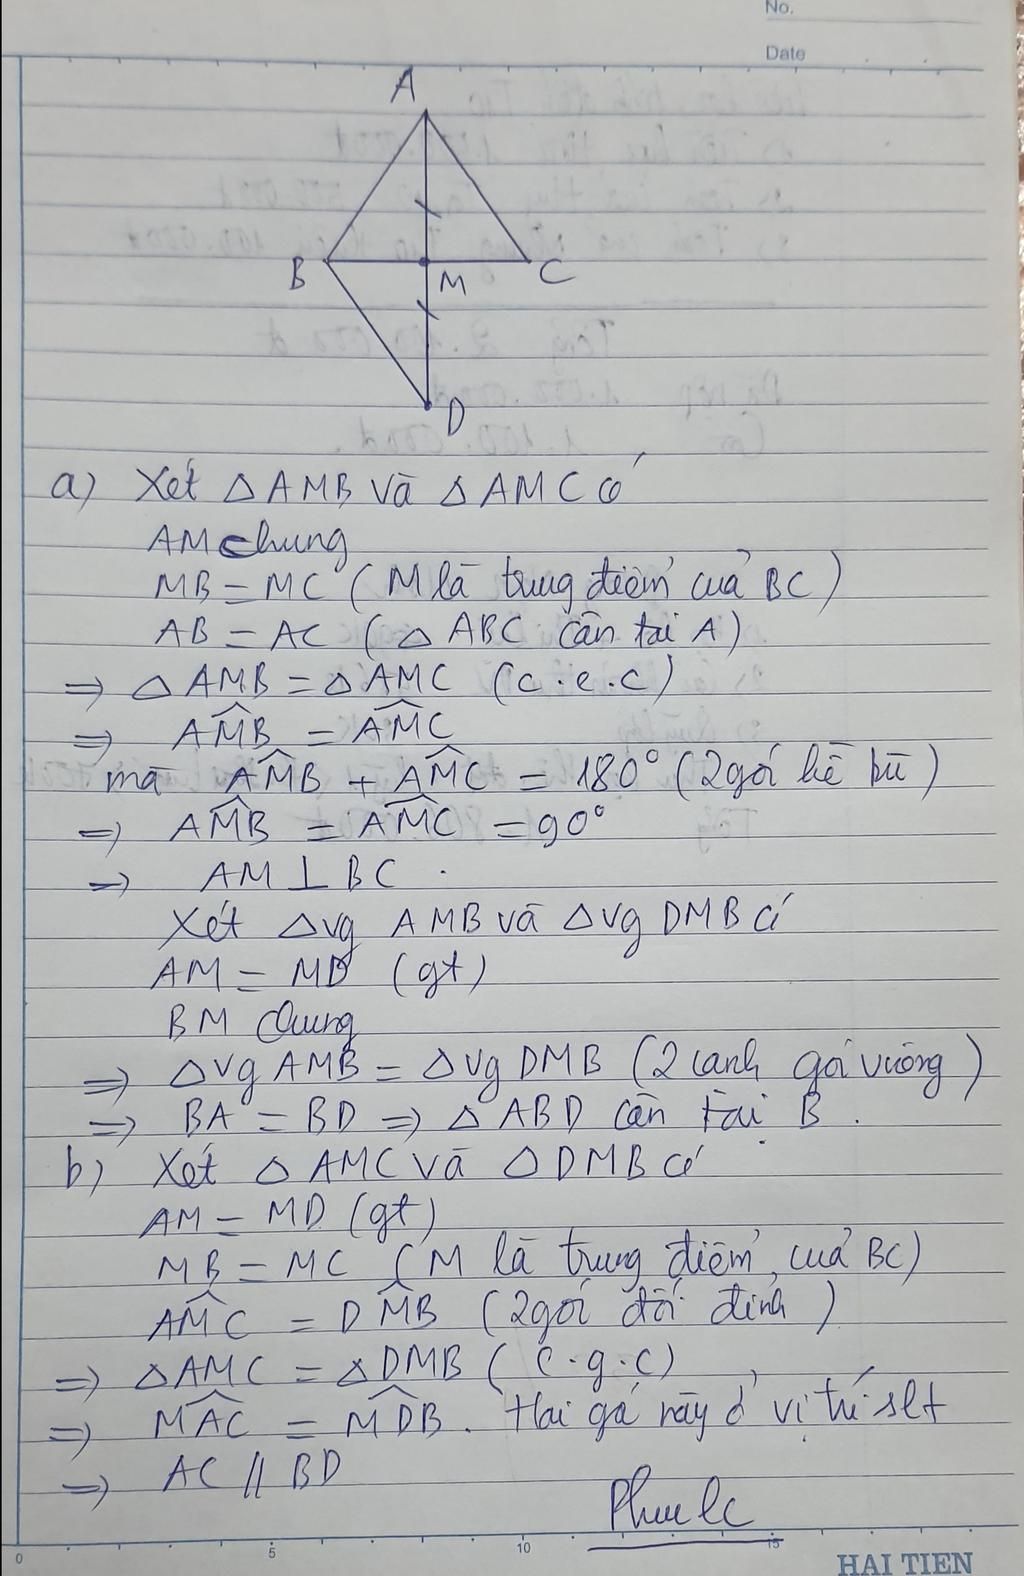 No.
Date
A
B
M
C
D
a) Xét △AMB và △AMC có
AM chung
MB = MC (M là trung điểm của BC)
AB = AC (△ABC cân tại A)
=> △AMB = △AMC (c.c.c)
=> AM̂B = AM̂C
mà AM̂B + AM̂C = 180° (2 góc kề bù)
=> AM̂B = AM̂C = 90°
=> AM ⊥ BC.
Xét △vg AMB và △vg DMB có
AM = MD (gt)
BM chung
=> △vg AMB = △vg DMB (2 cạnh góc vuông)
=> BA = BD => △ABD cân tại B.
b) Xét △AMC và △DMB có
AM = MD (gt)
MB = MC (M là trung điểm của BC)
AM̂C = DM̂B (2 góc đối đỉnh)
=> △AMC = △DMB (c.g.c)
=> MÂC = MD̂B. Hai góc này ở vị trí slt
=> AC // BD
0 5 10 15
HAI TIEN